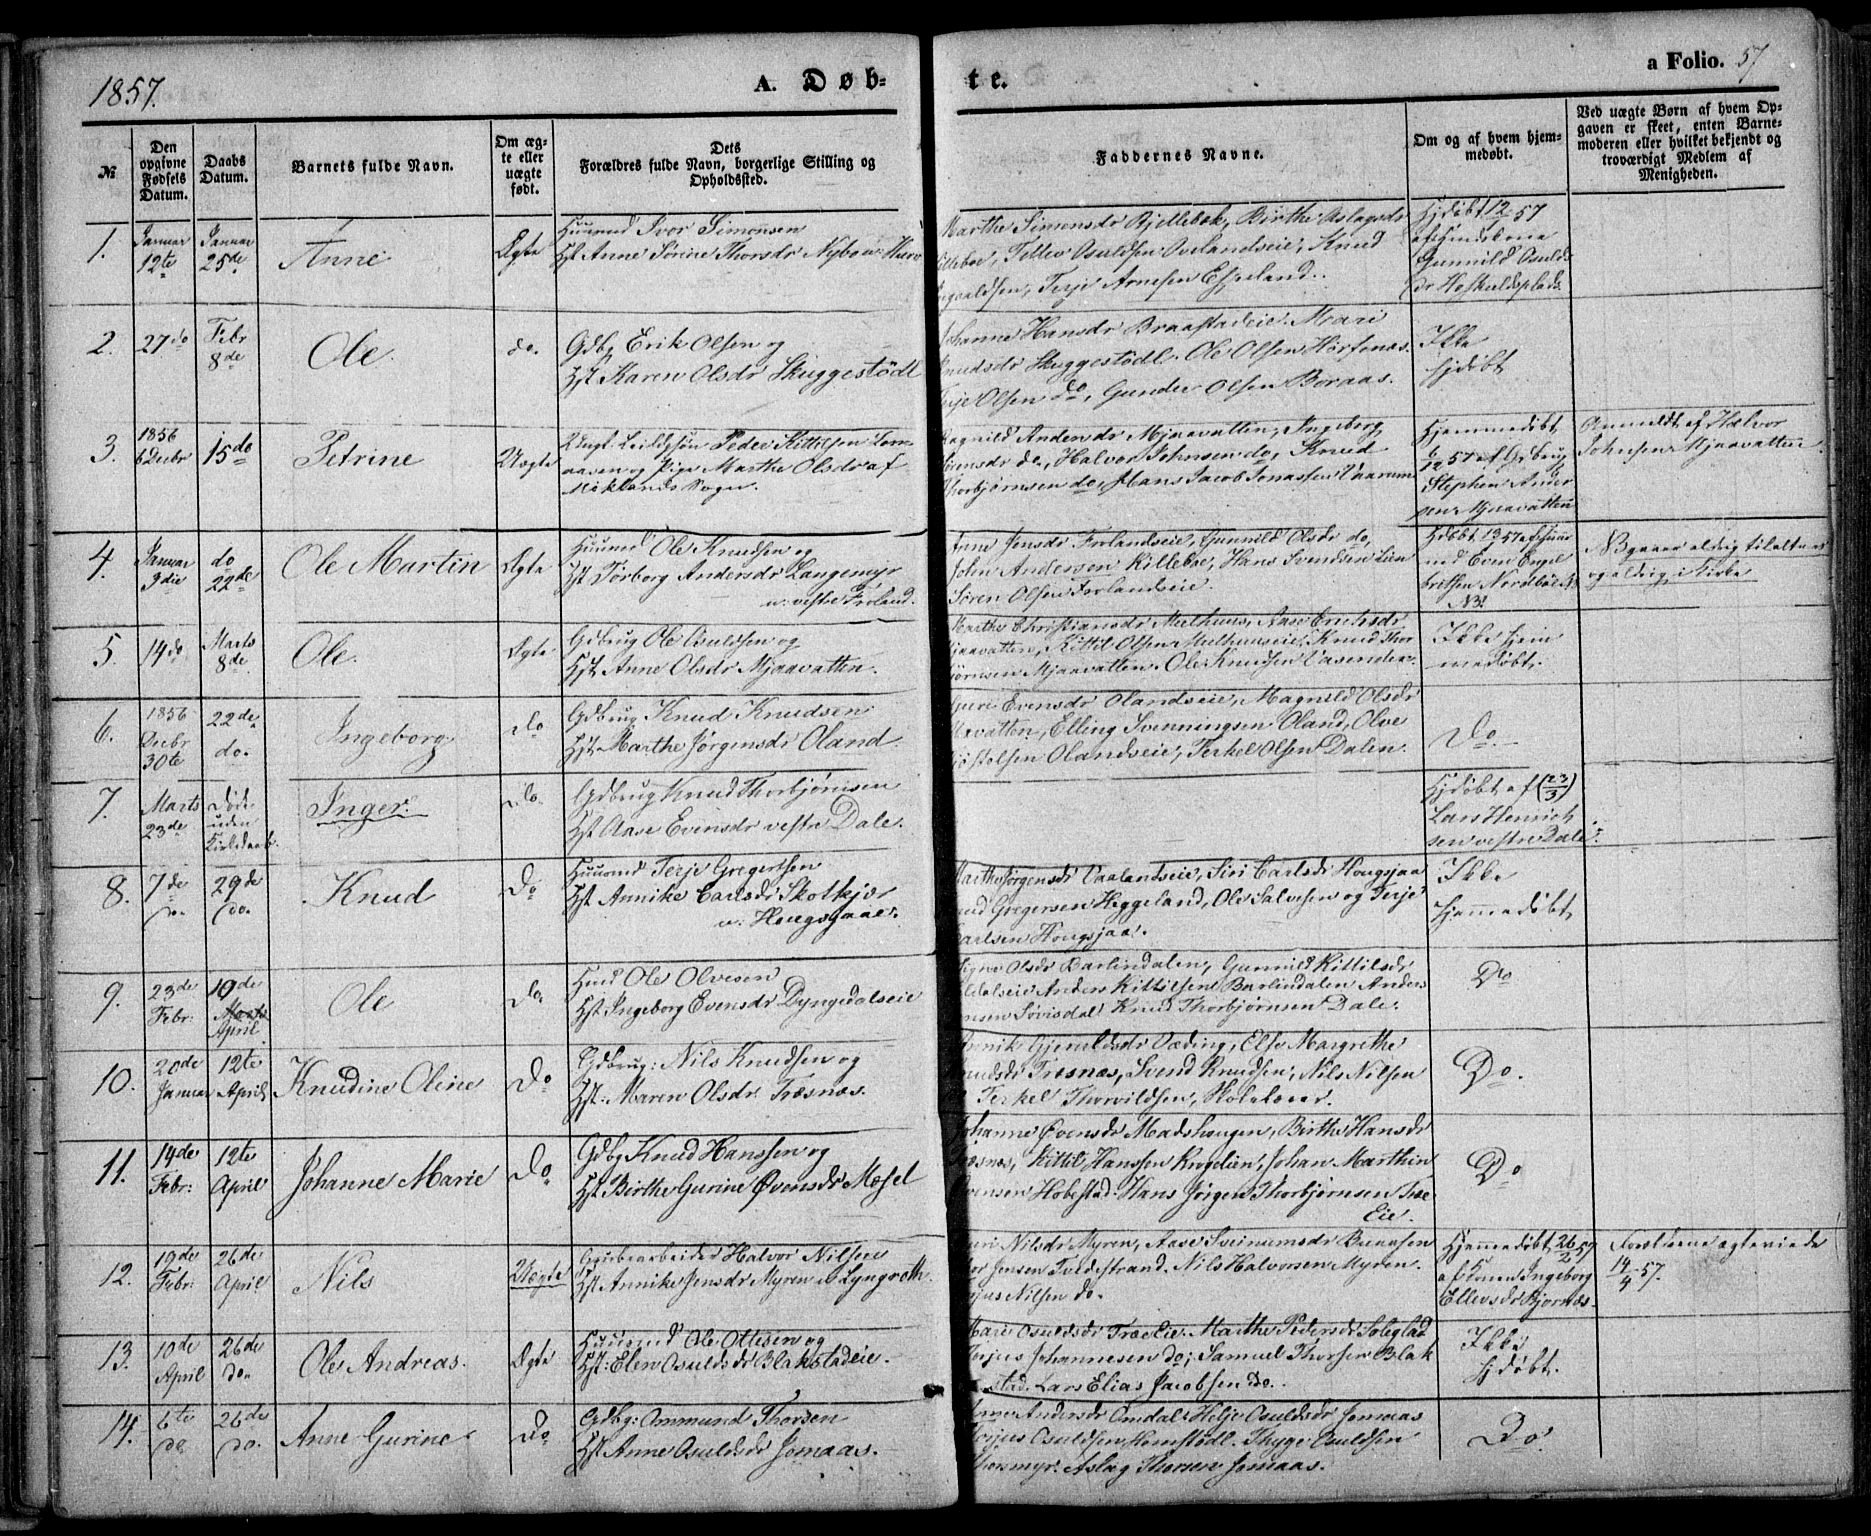 1857.
A. Døb-
te.
a Folio. 57
№
Den opgivne Fødsels Datum.
Daabs Datum.
Barnets fulde Navn.
Om ægte eller uægte født.
Dets
Forældres fulde Navn, borgerlige Stilling og Opholdssted.
Faddernes Navne.
Om og af hvem hjemmedøbt.
Ved uægte Børn af hvem Opgaven er skeet, enten Barnemoderen eller hvilket bekjendt og troværdigt Medlem af Menigheden.
1. Januar 12te Januar 25de Anne Ægte
Huusmd Ivor Simonsen
Hst Anne Sørine Thorsdr
Marthe Simensdr Bjellebek, Birthe Aslagsdr
Tellev Osuldsen Ovelandseie, Knud
Terje Arnesen Espeland.
Hjdøbt 12/1 57
Gunnild Osulds
dr Høskuldsplads
2. 27 do Febr 8de Ole do.
Gdbg Erik Olsen og
Hst Karen Olsdr Skuggestødl
Johanne Hansdr Braastadeie. Mari
Knudsdr Skuggestødl. Ole Olsen
Terje Olsen do, Gunder Olsen Boraas.
Ikke
hjdøbt
3. 1856 6 Decbr 15de Petrine Uægte
Ungk. Leilds søn Peder Kittilsen
aasen og Pige Marthe Olsdr af
Møklands Sogn.
Ragnild Andersdr Mjaavatten, Ingeborg
Sørensdr do, Halvor Johnsen do, Knud
Thorbjørnsen do, Hans Jacob Jonassen
Hjemmedøbt
6/12 57 af Grbrug
Stephen Ander
sen Mjaavatten
Anmeldt af Halvor
Johnsen Mjaavatten
4. Januar 9die do 22de Ole Martin Ægte
Huusmd Ole Knudsen og
Hst Torborg Andersdr Langemyr
u. vestre Froland.
Anne Jensdr Frolandseie, Gunnild Olsdr do,
John Andersen Killeboe, Hans Svendsen Lien
Søren Olsen Frolandseie.
Hjdøbt
md Even Engel
bretsen
NB!
NB
og aldrig i Kirke
5. 14 do Marts 8de Ole. Ægte
Gdbrug Ole Osuldsen og
Hst Anne Olsdr Mjaavatten.
Marthe Christiansdr Mælhuus, Aase Eriksdr
Mjaavatten, Kittil Olsen Mælhuuseie, Knud Thor
bjørnsen Mjaavatten. Ole Knudsen Vasenden.
Ikke hjem
medøbt.
6. 1856 Decbr 30te 22de do. Ingeborg do
Gdbrug Knud Knudsen
Hst Marthe Jørgensdr Oland.
Guri Evensdr Olandseie, Magnild Olsdr
Elling Svenningsen Oland, Olve
Olandseie, Terkel Olsen Dalen.
Do.
7. Marts 23de Døde uden Kirkedaab. Inger do.
Gdbrug Knud Thorbjørnsen
Hst Aase Evensdr vestre Dale.
Hjdøbt af (23/3)
Lars Henrich
sen vestre Dale.
8. 7de do. 29de do. Knud Do
Huusmd Terje Gregertsen
Hst Annike Carlsdr Skotkjær
u. Hougsjaae.
Marthe Jørgensdr Vaalandseie, Siri Carlsdr Hougsjaa
Knud Gregersen Heggeland, Ole Salvesen og Terje
Carlsen Hougsjaa.
Ikke
hjemmedøbt
9. 23de Febr: 10de April Ole Do.
Husmd Ole Olvesen
Hst Ingeborg Evensdr Dyngedalseie
Signe Olsdr Barlindalen, Gunnild Kittilsdr
Anders Kittilsen Barlindalen Anders
Knud Thorbjørnsen Dale.
Do
10. 20de Januar 12te April Knudine Oline Do
Gdbrug: Nils Knudsen og
Hst: Maren Olsdr Træsnæs.
Annik Gjeruldsdr Væding, Else Margrethe
Knudsdr Træsnæs, Svend Knudsen, Nils Nilsen
Terkel Thorvildsen,
Do.
11. 14de Febr: 12te April Johanne Marie Do
Gdbg Knud Hanssen og
Hst Birthe Gurine Øvensdr Mæsel
Johanne Øvensdr Madshaugen, Birthe Hansdr
Træsnæs, Kittil Hanssen Krogelien, Johan Marthin
Øvensen Hobestad. Hans Jørgen Thorbjørnsen Træ
Eie.
Do
12. 19de Febr: 26de April Nils Uægte
Grubearbeider Halvor Nilsen
Hst Annike Jensdr Myren u. Lyngroth
Guri Nilsdr Myren, Aase
Jensen Tvedestrand. Nils Halvorsen Myren
Nilsen do.
Hjemmedøbt 26/2 57
af Konen Ingeborg
Ellevsdr Bjornæs.
Forældrene ægteviede
14/4 57.
13. 10de April 26de do. Ole Andreas. Ægte
Huusmd Ole Ottesen og
Hst: Elen Osuldsdr Blakstadeie.
Mari Osuldsdr Træ Eie. Marthe Pedersdr Soleglad
Terjus Johannesen do; Samuel Thorsen Blak
stad. Lars Elias Jacobsen do.
Ikke
hjdøbt.
14. 6te do 26de do. Anne Gurine Do
Gdbg: Ommund Thorsen
Hst Anne Osuldsdr Jomaas.
Anne Andersdr Omdal. Helje Osuldsdr Jomaas
Terjus Osuldsen Hemstødl. Thyge Osuldsen
Thorsmyr. Aslag Thorsen Jomaas.
Do